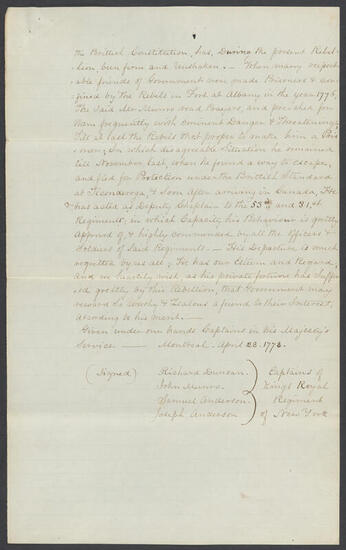 the British Constitution, has, During the present Rebel-
lion, been firm and Unshaken. — When many respect-
able friends of Government were made Prisoners & con-
fined by the Rebels in Fort at Albany in the year 1776,
The said Mr. Munro read Prayers, and preached for
them frequently with eminent Danger & Threatenings
till at last the Rebels thot proper to make him a Pris-
oner; In which disagreable Situation he remained
till November last, when he found a way to escape,
and fled for Protection under the British Standard
at Ticonderoga & Soon after arriving in Canada, He
has acted as Deputy Chaplain to the 53rd and 31.st
Regiments, in which Capacity his Behaviour is greatly
approved of & highly commended by all the Officers &
Soldiers of said Regiments. — His Departure is much
regretted by us all; He has our Esteem and Regard,
and we heartily wish as his private fortune has Suffer-
ed greatly by this Rebellion, that Government may
reward So worthy & Zealous a friend to their Interest,
according to his merit. —
Given under our hands Captains in his Majesty's
Service — Montreal, April 23. 1778.
(Signed) Richard Duncan. Captains of
John Munro. Kings Royal
Samuel Anderson. Regiment
Joseph Anderson of New York